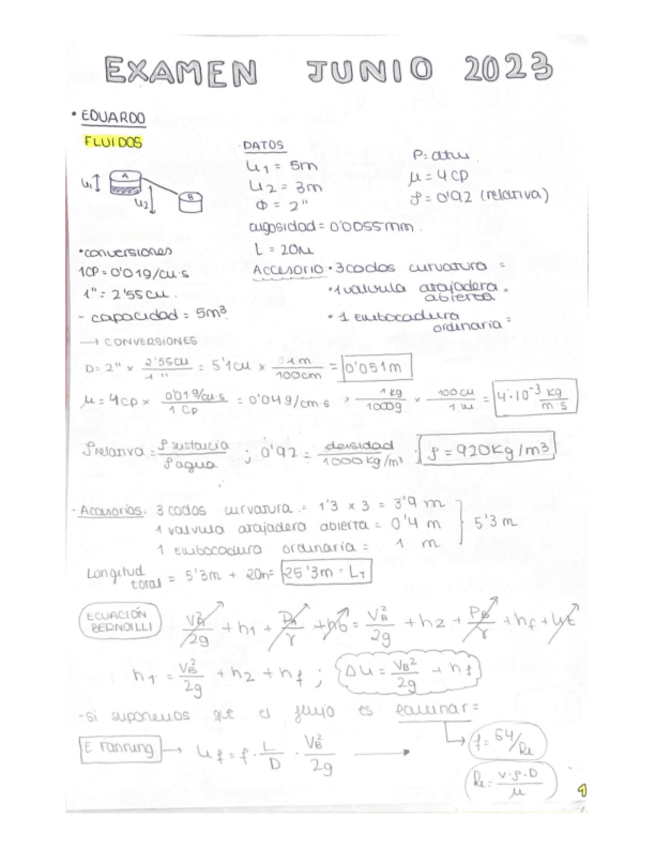 EXAMEN JUNIO 2023
• EDUARDO
FLUIDOS
DATOS
h1 = 5m
h2 = 3m
Φ = 2"
rugosidad = 0'0055mm.
L = 20m
P = atm.
μ = 4 CP
ρ = 0'92 (relativa)
A
B
h1
h2
Accesorio • 3 codos curvatura =
• 1 valvula atajadera abierta =
• 1 embocadura ordinaria =
• conversiones
1CP = 0'01g/cm·s
1" = 2'55cm.
- capacidad = 5m³
→ CONVERSIONES
D = 2" × 2'55cm / 1" = 5'1cm × 1m / 100cm = 0'051m
μ = 4CP × 0'01g/cm·s / 1 CP = 0'04g/cm·s × 1kg / 1000g × 100cm / 1m = 4·10⁻³ kg / m·s
ρ relativa = ρ sustancia / ρ agua ; 0'92 = densidad / 1000 kg/m³ ρ = 920kg/m³
- Accesorios: 3 codos curvatura = 1'3 × 3 = 3'9 m
1 valvula atajadera abierta = 0'4 m } 5'3 m
1 embocadura ordinaria = 1 m
Longitud total = 5'3m + 20m = 25'3m = LT
ECUACIÓN BERNOILLI
VA² / 2g + h1 + PA / γ + hb = VB² / 2g + h2 + PB / γ + hf + ht
h1 = VB² / 2g + h2 + hf ; Δh = VB² / 2g + hf
- si suponemos que el flujo es laminar =
E. Fanning → hf = f · L / D · VB² / 2g →
f = 64/Re
Re = v·ρ·D / μ
1